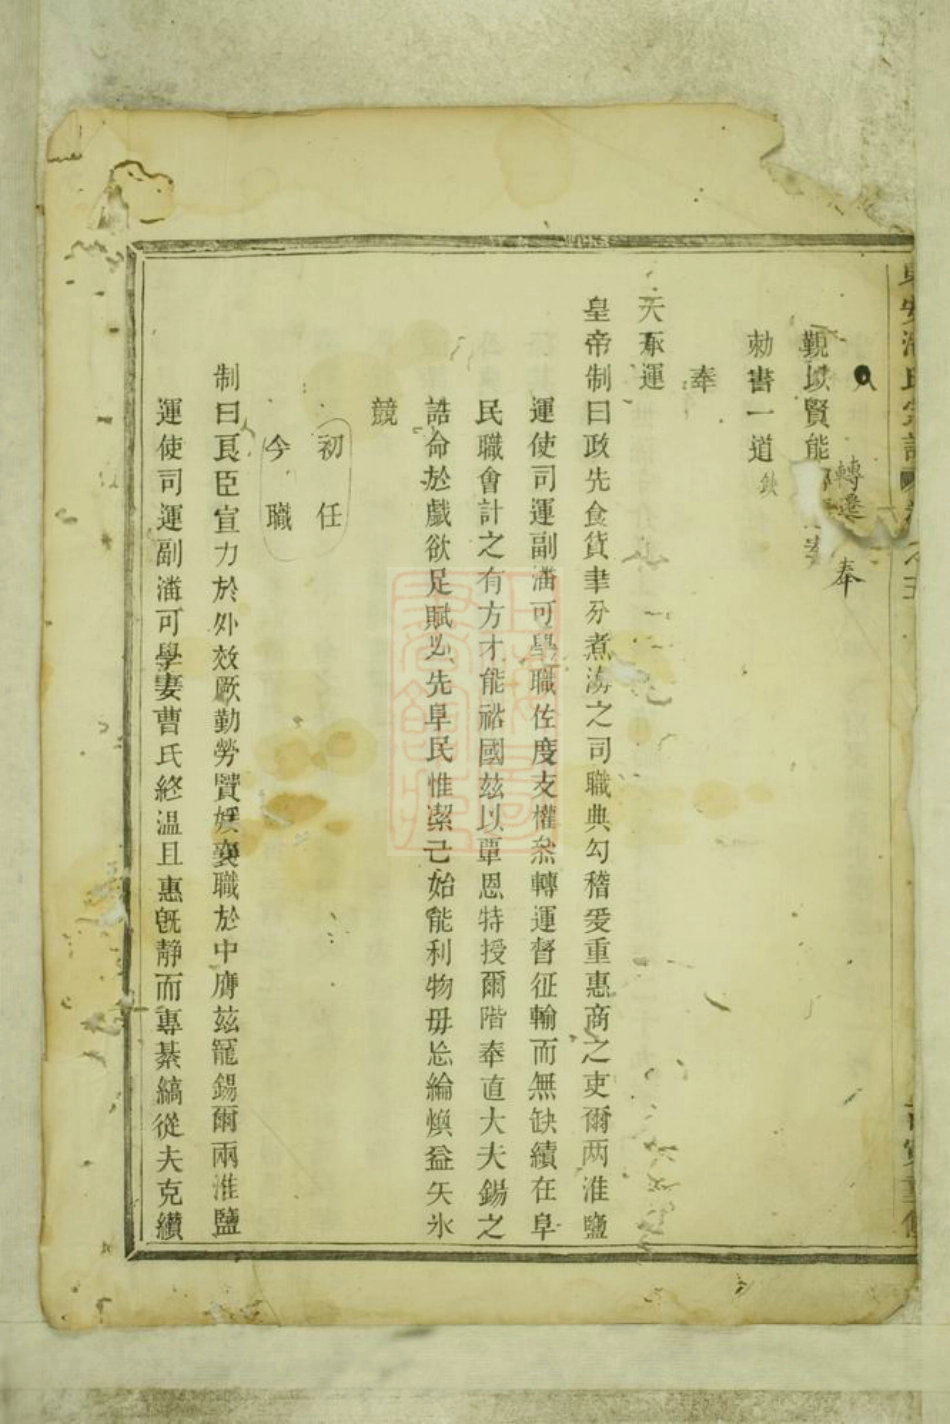 轉遷
奉
覲以賢能
勅書一道
奉
天承運
皇帝制曰政先食貨聿分煮海之司職典勾稽爰重惠商之吏爾两淮鹽
運使司運副潘可學職佐度支權叅轉運督征輸而無缺績在阜
民職會計之有方才能裕國兹以覃恩特授爾階奉直大夫錫之
誥命於戲欲足賦必先阜民惟潔己始能利物毋忘綸煥益矢氷
兢
初任
今職
制曰良臣宣力於外效厥勤勞賢媛襄職於中膺兹寵錫爾兩淮鹽
運使司運副潘可學妻曹氏終温且惠旣靜而專綦縞從夫克纘